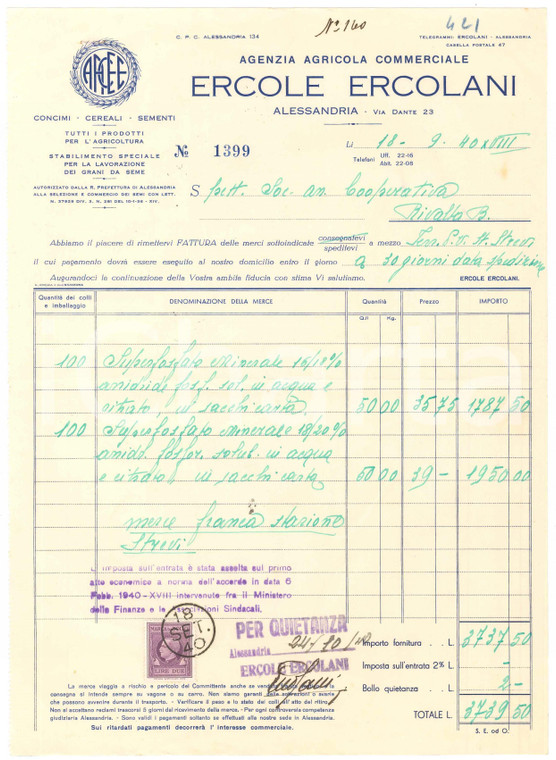 N° 160
421
C. P. C. ALESSANDRIA 134
TELEGRAMMI: ERCOLANI - ALESSANDRIA
CASELLA POSTALE 67
AGENZIA AGRICOLA COMMERCIALE
ERCOLE ERCOLANI
ALESSANDRIA - VIA DANTE 23
CONCIMI - CEREALI - SEMENTI
TUTTI I PRODOTTI
PER L'AGRICOLTURA
STABILIMENTO SPECIALE
PER LA LAVORAZIONE
DEI GRANI DA SEME
AUTORIZZATO DALLA R. PREFETTURA DI ALESSANDRIA
ALLA SELEZIONE E COMMERCIO DEI SEMI CON LETT.
№ 1399
Li 18 - 9. 40 XVIII
Telefoni Uff. 22-16
Abit. 22-08
Spett. Soc. an. Cooperativa
Rivalta B.
Abbiamo il piacere di rimettervi FATTURA delle merci sottoindicate consegnatevi speditevi a mezzo Ferr. P. V. St. Strevi
il cui pagamento dovrà essere eseguito al nostro domicilio entro il giorno a 30 giorni data spedizione
Augurandoci la continuazione della Vostra ambita fiducia con stima Vi salutiamo. ERCOLE ERCOLANI.
Quantità dei colli e imballaggio
DENOMINAZIONE DELLA MERCE
Quantità
Prezzo
IMPORTO
Q.li Kg.
100 Superfosfato Minerale 16/18%
anidride fosf. sol. in acqua e
citrato, in sacchi carta 50 00 35 75 1787 50
100 Superfosfato Minerale 18/20%
anid. fosfor. solub. in acqua
e citrato in sacchi carta 50 00 39 - 1950.00
merce franca stazione
Strevi
L'imposta sull'entrata è stata assolta sul primo
atto economico a norma dell'accordo in data 6
Febb. 1940-XVIII intervenuto fra il Ministero
delle Finanze e le Associazioni Sindacali.
18
SET.
40
LIRE DUE
PER QUIETANZA
Alessandria 24/10/40
ERCOLE ERCOLANI
Importo fornitura L. 3737 50
Imposta sull'entrata 2% L. -
Bollo quietanza L. 2 -
TOTALE L. 3739 50
La merce viaggia a rischio e pericolo del Committente anche se
consegna si intende sempre su vagone o su carro. Non siamo
che possono avvenire durante il trasporto. - Verificare il peso e lo stato dei colli all'atto del ritiro.
Non si accettano reclami trascorsi 8 giorni dal ricevimento della merce. - Per ogni controversia competenza
giudiziaria Alessandria. - Sono validi i pagamenti soltanto se effettuati alla nostra sede in Alessandria.
Sui ritardati pagamenti decorrerà l'interesse commerciale.
S. E. od O.